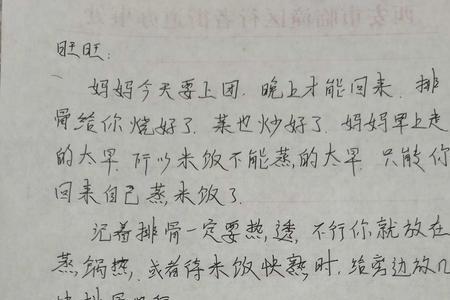 旺旺:
妈妈今天要上团.晚上才能回来.排
骨给你烧好了.菜也炒好了.妈妈早上走
的太早.所以米饭不能蒸的太早.只能你
回来自己蒸米饭了.
记着排骨一定要热,透,不行你就放在
蒸锅热,或者待米饭快熟时,给旁边放几
块排骨